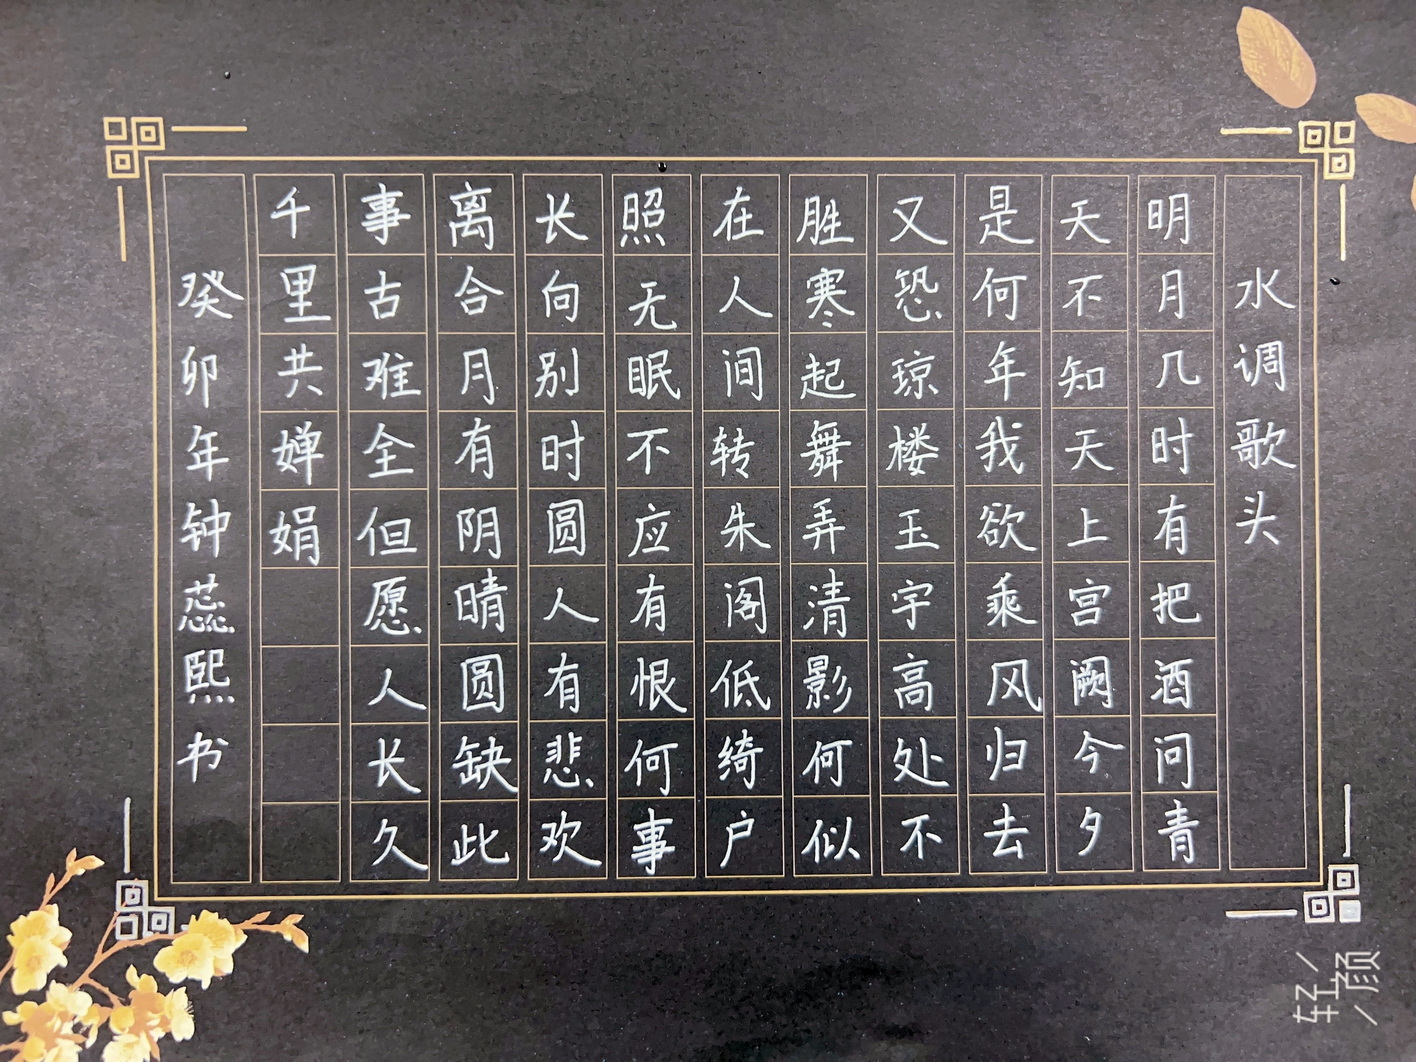 水调歌头
明月几时有把酒问青
天不知天上宫阙今夕
是何年我欲乘风归去
又恐琼楼玉宇高处不
胜寒起舞弄清影何似
在人间转朱阁低绮户
照无眠不应有恨何事
长向别时圆人有悲欢
离合月有阴晴圆缺此
事古难全但愿人长久
千里共婵娟
癸卯年钟蕊熙书
轻颜